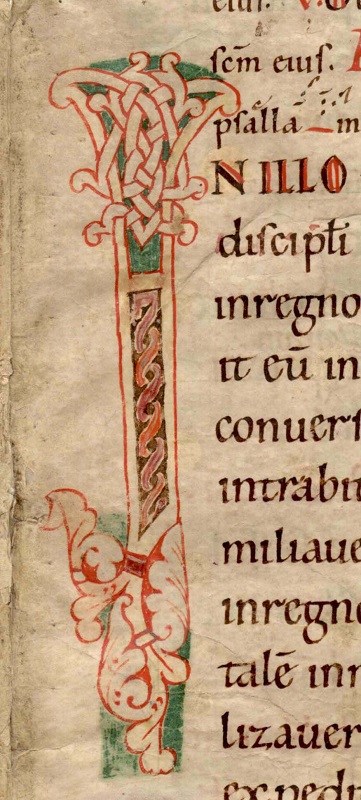 eius. V. O
scm̄ eius.
psallā in
IN ILLO
discipłi
inregno
it eū in
conuers
intrabit
miliaue
inregno
talē inr
lizauer
expedit